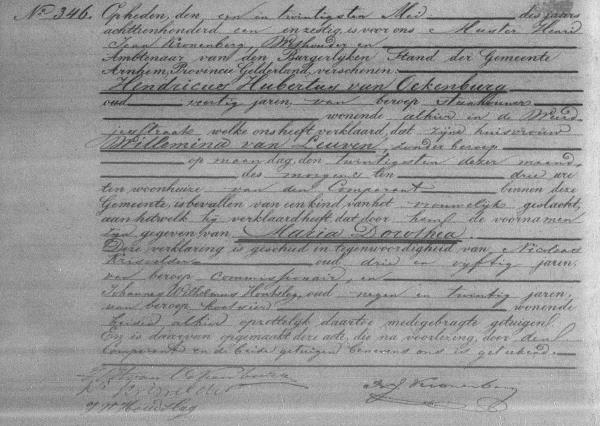 No 346. Op heden, den een en twintigsten Mei des jaars
achttienhonderd een en zestig, is voor ons Meester Henri
Jean Kronenberg, Wethouder en
Ambtenaar van den Burgerlijken Stand der Gemeente
Arnhem, Provincie Gelderland, verschenen:
Hendricus Hubertus van Ockenburg
oud veertig jaren, van beroep
wonende alhier in de
welke ons heeft verklaard, dat zijne huisvrouw
Willemina van Leuven, zonder beroep
op maandag, den twintigsten dezer maand,
des morgens ten drie ure
ten woonhuize van den Comparant binnen deze
Gemeente, is bevallen van een kind van het vrouwelijk geslacht,
aan hetwelk hij verklaard heeft dat door hem de voornamen
zijn gegeven van Maria Dorothea.
Deze verklaring is geschied in tegenwoordigheid van Nicolaas
oud drie en vijftig jaren,
van beroep commissionair, en
Johannes Wilhelmus oud negen en twintig jaren,
van beroep wonende
beiden alhier opzettelijk daartoe medegebragte getuigen.
En is daarvan opgemaakt deze acte, die na voorlezing, door den
Comparant en de beide getuigen benevens ons is geteekend.
Kronenberg